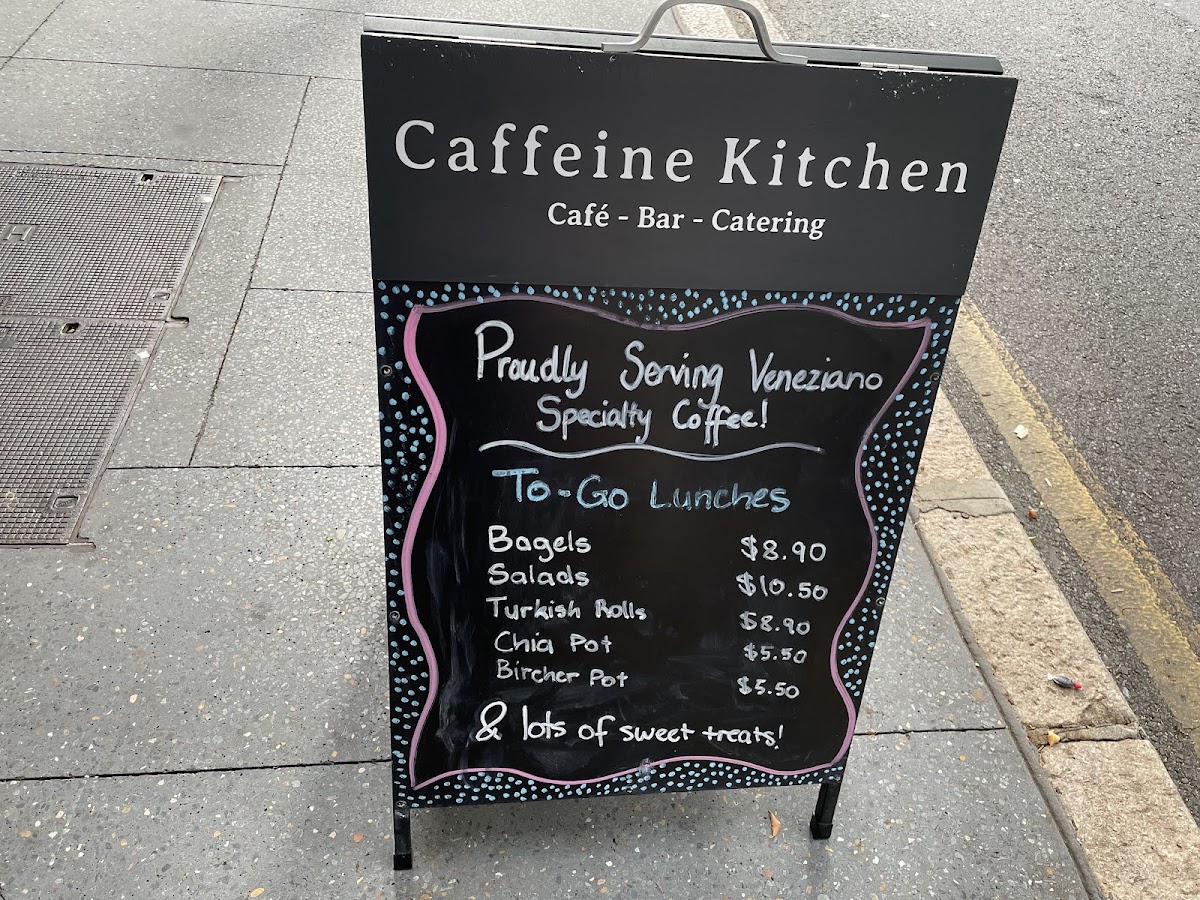 Caffeine Kitchen
Café - Bar - Catering
Proudly Serving Veneziano
Specialty Coffee!
To-Go Lunches
Bagels $8.90
Salads $10.50
Turkish Rolls $8.90
Chia Pot $5.50
Bircher Pot $5.50
& lots of sweet treats!